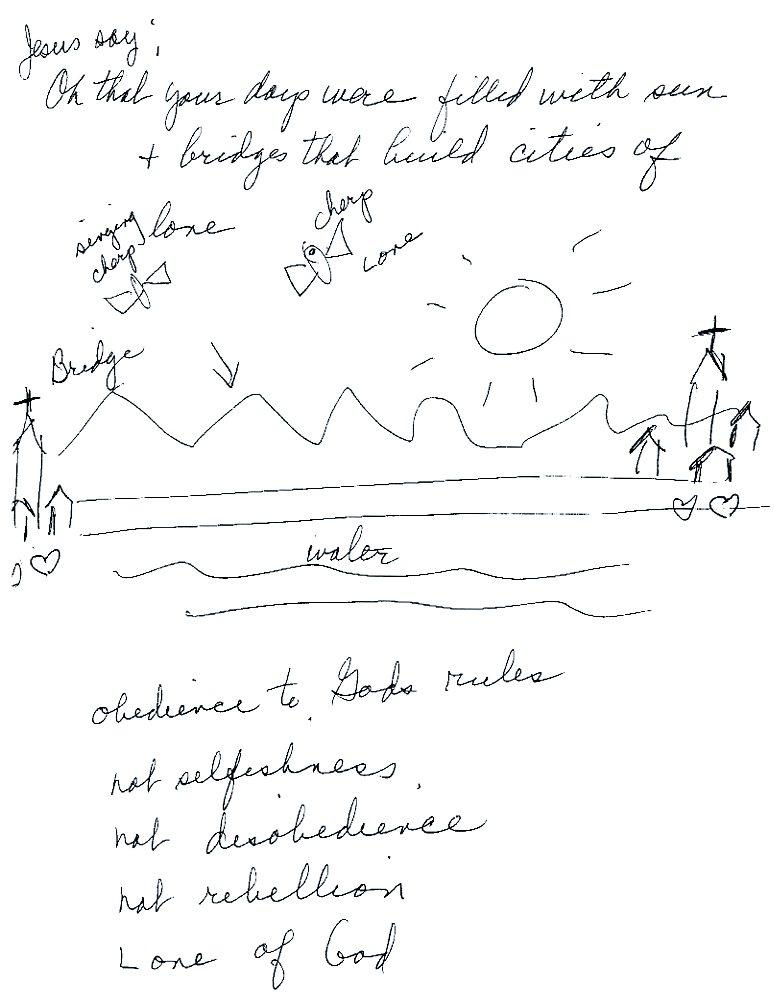 Jesus say;
Oh that your days were filled with sun
+ bridges that build cities of
love
singing
cherp
cherp
Love
Bridge
water
obedience to Gods rules
not selfishness
not disobedience
not rebellion
Love of God